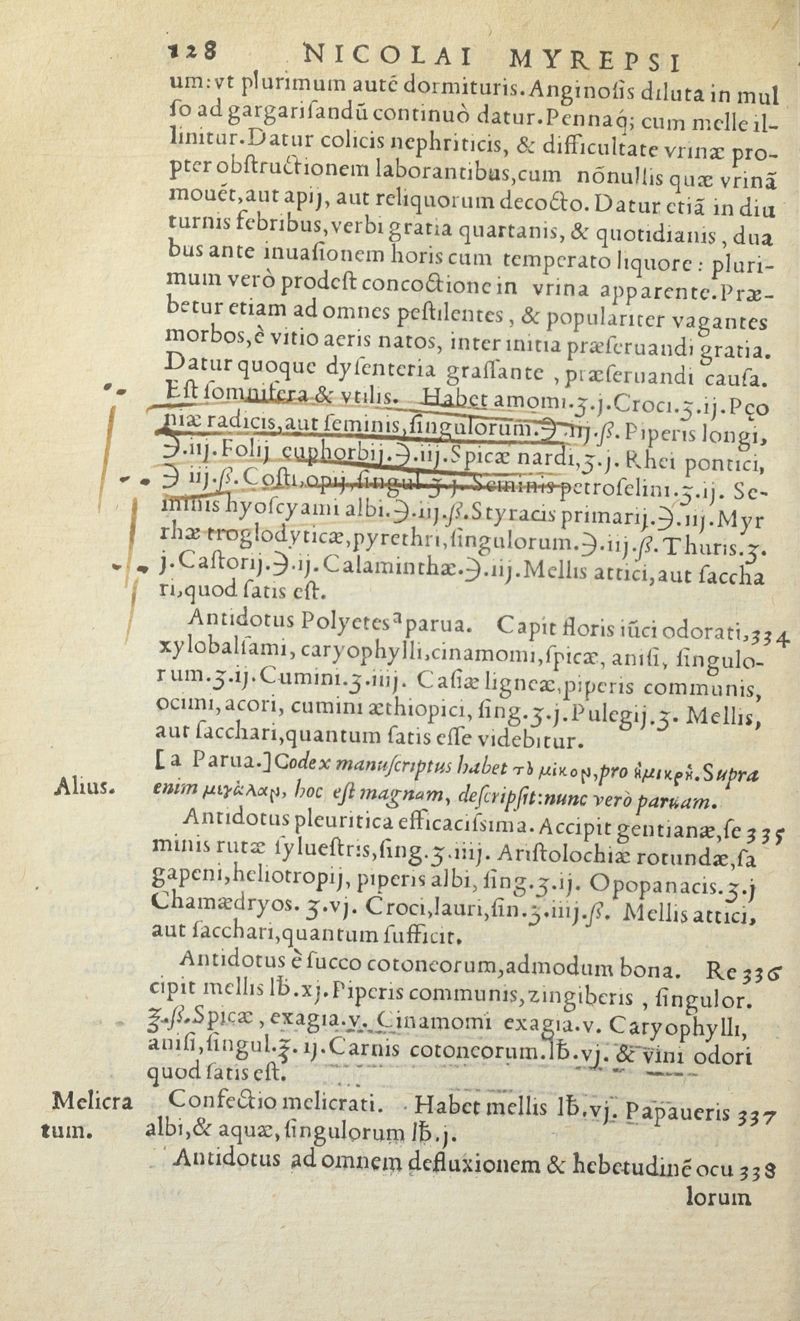 128 NICOLAI MYREPSI
um: vt plurimum autē dormituris. Anginosis diluta in mul
so ad gargarisandū continuò datur. Pennaq́; cum melle il-
linitur. Datur colicis nephriticis, & difficultate vrinæ pro-
pter obstructionem laborantibus, cum nōnullis quæ vrinā
mouēt, aut apij, aut reliquorum decocto. Datur etiā in diu
turnis febribus, verbi gratia quartanis, & quotidianis, dua
bus ante inuasionem horis cum temperato liquore: pluri-
mum verò prodest concoctione in vrina apparente. Præ-
betur etiam ad omnes pestilentes, & populariter vagantes
morbos, è vitio aeris natos, inter initia præseruandi gratia.
Datur quoque dysenteria grassante, præseruandi causa.
Est somnifera & vtilis. Habet amomi.ʒ.j. Croci.ʒ.ij. Pæo
niæ radicis, aut seminis, singulorum.℈.iij.ß. Piperis longi,
℈.iij. Folij euphorbij.℈.iij. Spicæ nardi, ʒ.j. Rhei pontici,
℈ iij.ß. Costi, opij, singul.ʒ.j. Seminis petroselini.ʒ.ij. Se-
minis hyoscyami albi.℈.iij.ß. Styracis primarij.℈.iij. Myr
rhæ troglodyticæ, pyrethri, singulorum.℈.iij.ß. Thuris.ʒ.
j. Castorij.℈.ij. Calaminthæ.℈.iij. Mellis attici, aut saccha
ri, quod satis est.
Antidotus Polyetes ª parua. Capit floris iūci odorati, 334
xylobalsami, caryophylli, cinamomi, spicæ, anisi, singulo-
rum.ʒ.ij. Cumini.ʒ.iiij. Casiæ ligneæ, piperis communis,
ocimi, acori, cumini æthiopici, sing.ʒ.j. Pulegij.ʒ. Mellis,
aut sacchari, quantum satis esse videbitur.
[a Parua.] Codex manuscriptus habet τὸ μίκορ, pro ἡ μικρὴ. Supra
Alius. enim μεγάλαρ, hoc est magnam, descripsit: nunc verò paruam.
Antidotus pleuritica efficacissima. Accipit gentianæ, se 335
minis rutæ syluestris, sing.ʒ.iiij. Aristolochiæ rotundæ, sa
gapeni, heliotropij, piperis albi, sing.ʒ.ij. Opopanacis.ʒ.j
Chamædryos. ʒ.vj. Croci, lauri, sin.ʒ.iiij.ß. Mellis attici,
aut sacchari, quantum sufficit.
Antidotus è succo cotoneorum, admodum bona. Re 336
cipit mellis lb.xj. Piperis communis, zingiberis, singulor.
℥.ß. Spicæ, exagia.v. Cinamomi exagia.v. Caryophylli,
anisi, singul.℥.ij. Carnis cotoneorum.lb.vj. & vini odori
quod satis est.
Melicra Confectio melicrati. Habet mellis lb.vj. Papaueris 337
tum. albi, & aquæ, singulorum lb.j.
Antidotus ad omnem defluxionem & hebetudinē ocu 338
lorum